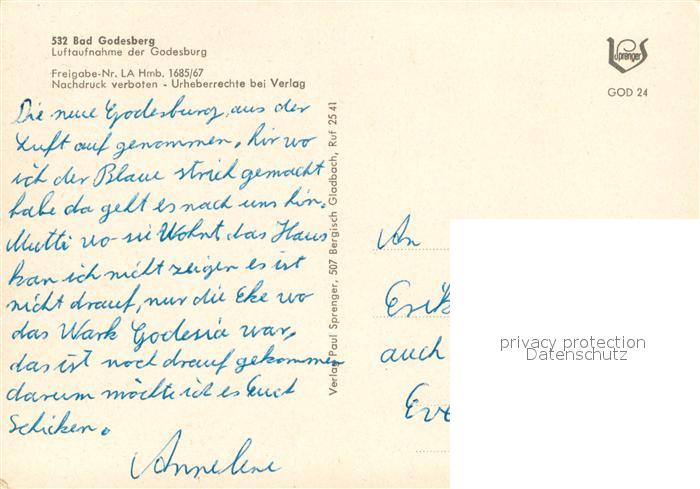 532 Bad Godesberg
Luftaufnahme der Godesburg
Freigabe-Nr. LA Hmb. 1685/67
Nachdruck verboten - Urheberrechte bei Verlag
Sprenger
GOD 24
Die neue Godesburg, aus der
Luft auf genommen, hir wo
ich der Blaue strich gemacht
habe da geht es nach uns hin.
Mutti wo sie Wohnt das Haus
kan ich nicht zeigen es ist
nicht drauf, nur die Eke wo
das Wark Godesia war,
das ist noch drauf gekommen
darum möchte ich es Euch
Schicken.
Annelene
Verlag Paul Sprenger, 507 Bergisch Gladbach, Ruf 25 41
An
auch
privacy protection
Datenschutz